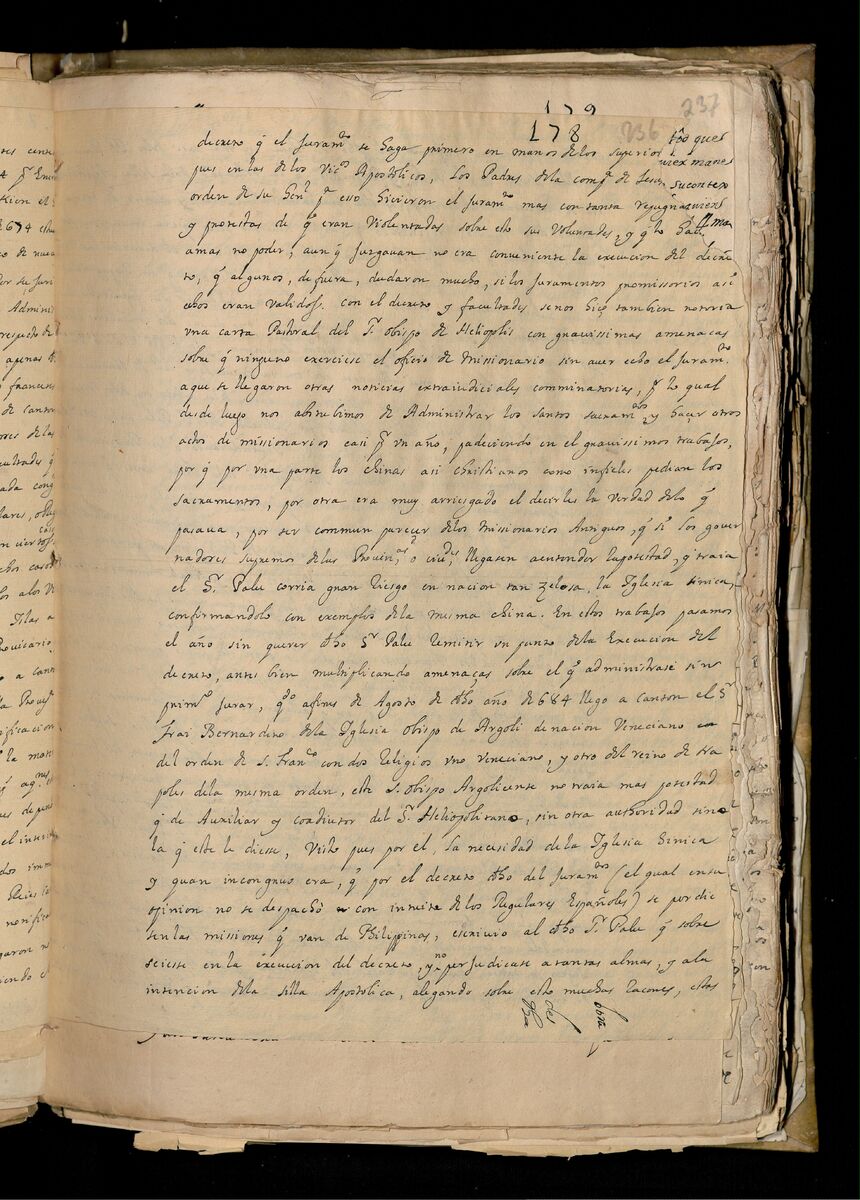 179
178
236
237
decreto q̃ el Juramto se haga primero en manos delos superiores
pues en las delos Vics Apostolicos, Los Padres dela compa de Jesus
orden de su Genl pa esso hicieron el Juramto mas con tanta repugnancia
y protestas de q̃ eran Violentadas sobre esto sus Voluntades, y q̃ lo hacian
a mas no poder; aun q̃ Juzgavan no era conveniente la execucion del decre
to, q̃ algunos, de fuera, dudaron mucho, si los Juramentos promissorios asi
echos eran validos. con el decreto y facultades se nos hiço tambien notoria
vna carta Pastoral del Sr obispo de Heliopolis con gravissimas amenaças
sobre q̃ ninguno exerciese el oficio de Missionario sin aver echo el Juramto.
aque se llegaron otras noticias extrajudiciales comminatorias, pr lo qual
desde luego nos abstubimos de Administrar los santos sacramtos, y haçer otros
actos de missionarios casi pr vn año, padeciendo en el gravissimos trabajos,
por q̃ por vna parte los chinas asi christianos como infieles pedian los
sacramentos, por otra era muy arriesgado el decirles la verdad delo q̃
pasava, por ser commun parecer delos Missionarios Antiguos, q̃ si los gover
nadores supremos delas Provinas, o ciudes, llegasen a entender la potestad, q̃ traia
el Sr Palu corria gran riesgo en nacion tan zelosa, la Iglesia sinica,
confirmandolo con exemplos dela misma china. En estos trabajos pasamos
el año sin querer dho Sr Palu remitir vn punto dela Execucion del
decreto, antes bien multiplicando amenaças sobre el q̃ administrase sin
primo Jurar, qdo a fines de Agosto de dho año de 684 llego a canton el Sr
Frai Bernardino dela Iglesia obispo de Argoli de nacion Veneciano
del orden de S. Franco con dos religios vno veneciano, y otro del reino de Na
poles dela mesma orden, este S. obispo Argolicense no traia mas potestad
q̃ de Auxiliar y coadiutor del Sr Heliopolitano, sin otra authoridad sino
la q̃ este le diesse, Visto pues por el, la necesidad de la Iglesia Sinica
y quan incongruo era, q̃ por el decreto dho del Juramto (el qual en su
opinion no se despachò con intuito de los Regulares Españoles) se perdie
sen las missiones q̃ van de Philippinas, escrivio al dho Sr Palu q̃ sobre
seiesse en la execucion del decreto, y no perjudicase a tantas almas, y a la
intencion dela silla Apostolica, alegando sobre esto muchas raçones, estas